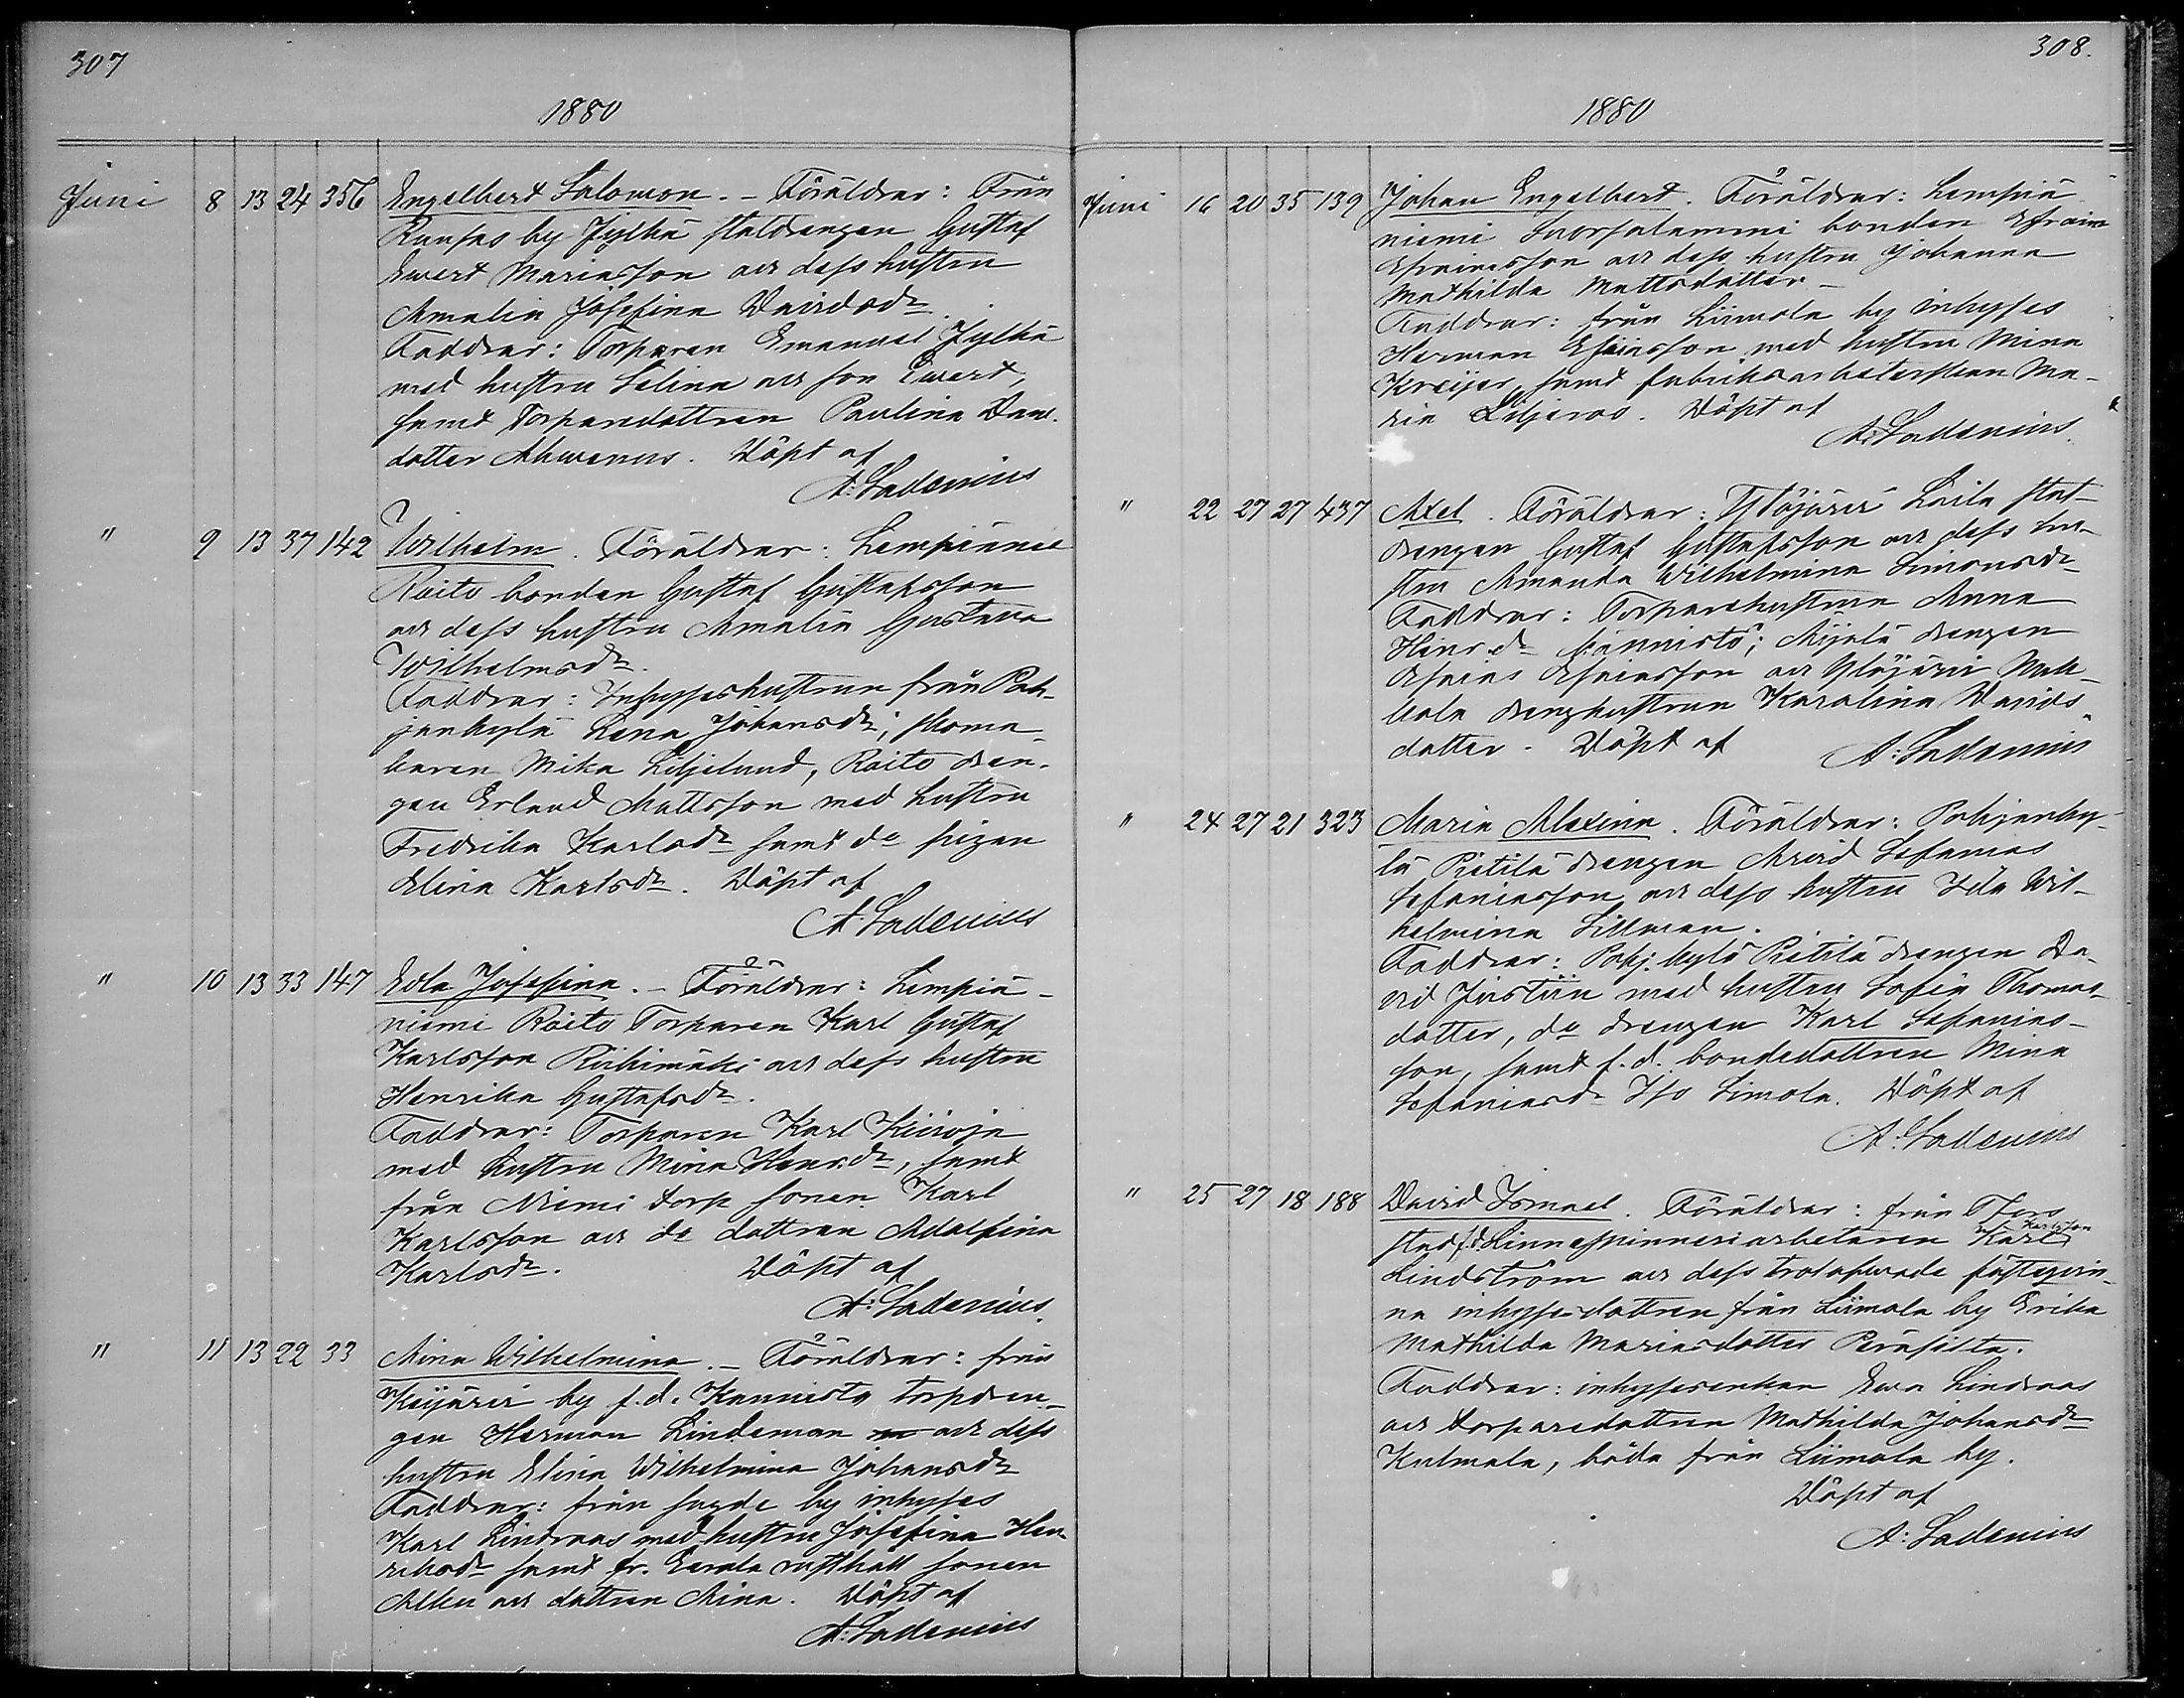 307
1880
Juni 8 13 24 356 Engelbert Salomon. – Föräldrar: Från
by Jylhä statdrengen Gustaf
Ewert Mariasson och dess hustru
Amalia Josefina Davidsdr.
Faddrar: Torparen Emanuel Jylhä
med hustru Selina och son Ewert,
samt Torparedottren Paulina
dotter Ahvenus. Döpt af
A: Ladenius
" 9 13 37 142 Wilhelm. Föräldrar: Lempiänee
Roito bonden Gustaf Gustafsson
och dess hustru Amalia Gustava
Wilhelmsdr.
Faddrar: Inhyseshustrun från Poh-
jankylä Lena Johansdr;, skoma-
karen Mika Liljelund, Roito dren-
gen Erland Mattsson med hustru
Fredrika Karlsdr samt do pigan
Elina Karlsdr. Döpt af
A. Ladenius
" 10 13 33 147 Edla Josefina. – Föräldrar: Lempiä-
niemi Roito Torparen Karl Gustaf
Karlsson Riihimäki och dess hustru
Henrika Gustafsdr.
Faddrar: Torparen Karl Kiiroja
med hustru Mina Henr.dr, samt
från Niemi torp sonen Karl
Karlsson och do dottren Adolfina
Karlsdr. Döpt af
A: Ladenius.
" 11 13 22 33 Mina Wilhelmina. – Föräldrar: från
Kyjärvi by f.d. Kannisto torpdren-
gen Herman Lindeman och dess
hustru Elina Wilhelmina Johansdr
Faddrar: från sagde by inhyses
Karl Lindroos med hustru Josefina Hen-
riksdr samt fr. Eerola rusthåll sonen
och dottren Mina. Döpt af
A: Ladenius
308.
1880
Juni 16 20 35 139 Johan Engelbert. Föräldrar: Lempiä
niemi bonden Efraim
Efraimsson och dess hustru Johanna
Mathilda Mattsdotter –
Faddrar: från Liimola by inhyses
Herman Esaiasson med hustru Mina
Kreijer, samt fabriksarbeterskan Ma-
ria Liljeroos. Döpt af
A: Ladenius.
" 22 27 27 437 Axel. Föräldrar: Ylöjärvi Laila stat-
drengen Gustaf Gustafsson och dess hu-
stru Amanda Wilhelmina Simonsdr
Faddrar: Torparehustrun Anna
Henr.dr Männistö; Mijälä drengen
Esaias Esaiasson och Ylöjärvi Mik-
kola drenghustrun Karolina Davids-
dotter. Döpt af
A: Ladenius
" 24 27 21 323 Maria Alexina. Föräldrar: Pohjanky-
lä Pietilä drengen Arvid Sefanias
Sefaniasson och dess hustru Ida Wil-
helmina Sillman.
Faddrar: Pohj. kylä Pietilä drengen Da-
vid Justiin med hustru Sofia Thomas-
dotter, do drengen Karl Sefanias-
son, samt f.d. bondedottren Mina
Sefaniasdr Iso Simola. Döpt af
A: Ladenius
" 25 27 18 188 David Ismael. Föräldrar: från
stad f.d. Linnespinneriarbetaren Karl Karlsson
Lindström och dess trolofvade fästeqvin-
na inhysesdottren från Liimola by Erika
Mathilda Mariasdotter Peräsilta.
Faddrar: inhysesenkan Ewa Lindroos
och torparedottren Mathilda Johansdr
Kulmala, båda från Liimola by.
Döpt af
A: Ladenius